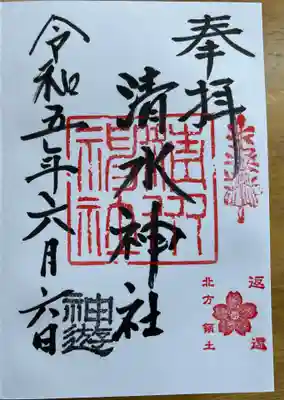 奉拝
清水神社
令和五年六月六日
清水神社
神遊
北方領土
返還